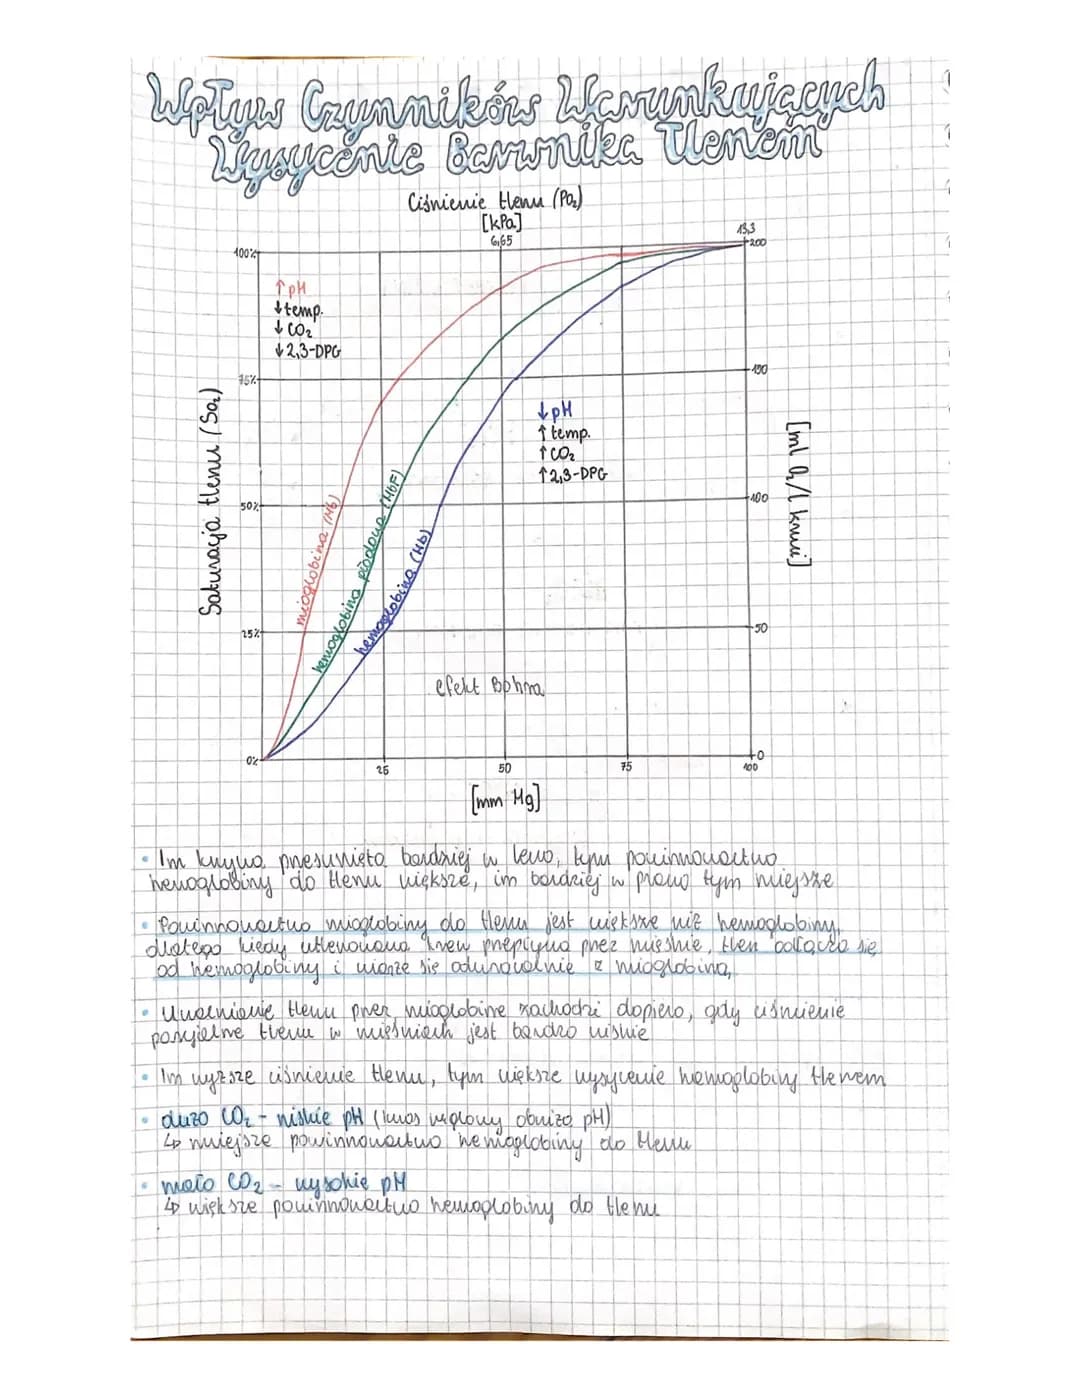 Wpływ Czynników Warunkujących
Wysycenie Barwnika Tlenem
Ciśnienie tlenu (Po₂)
[kPa]
6,65
13,3
100%
200
↑pH
↓temp.
↓CO₂
↓2,3-DPG
75%
150
↓pH
↑temp.
↑CO₂
↑2,3-DPG
Saturacja tlenu (So₂)
[ml O₂/l krwi]
50%
100
mioglobina (Mb)
hemoglobina płodowa (HbF)
hemoglobina (Hb)
25%
50
efekt Bohra
0%
0
25
50
75
100
[mm Hg]
• Im krzywa przesunięta bardziej w lewo, tym powinnowactwo
hemoglobiny do tlenu większe, im bardziej w prawo tym miejsze
• Powinnowactwo mioglobiny do tlenu jest większe niż hemoglobiny,
dlatego kiedy utlenowana krew przepływa przez mięśnie, tlen odłącza się
od hemoglobiny i wiąże się odwracalnie z mioglobiną,
• Uwolnienie tlenu przez mioglobinę zachodzi dopiero, gdy ciśnienie
parcjalne tlenu w mięśniach jest bardzo niskie
• Im wyższe ciśnienie tlenu, tym większe wysycenie hemoglobiny tlenem
• dużo CO₂ - niskie pH (kwas węglowy obniża pH)
↳ mniejsze powinnowactwo hemoglobiny do tlenu
• mało CO₂ - wysokie pH
↳ większe powinnowactwo hemoglobiny do tlenu